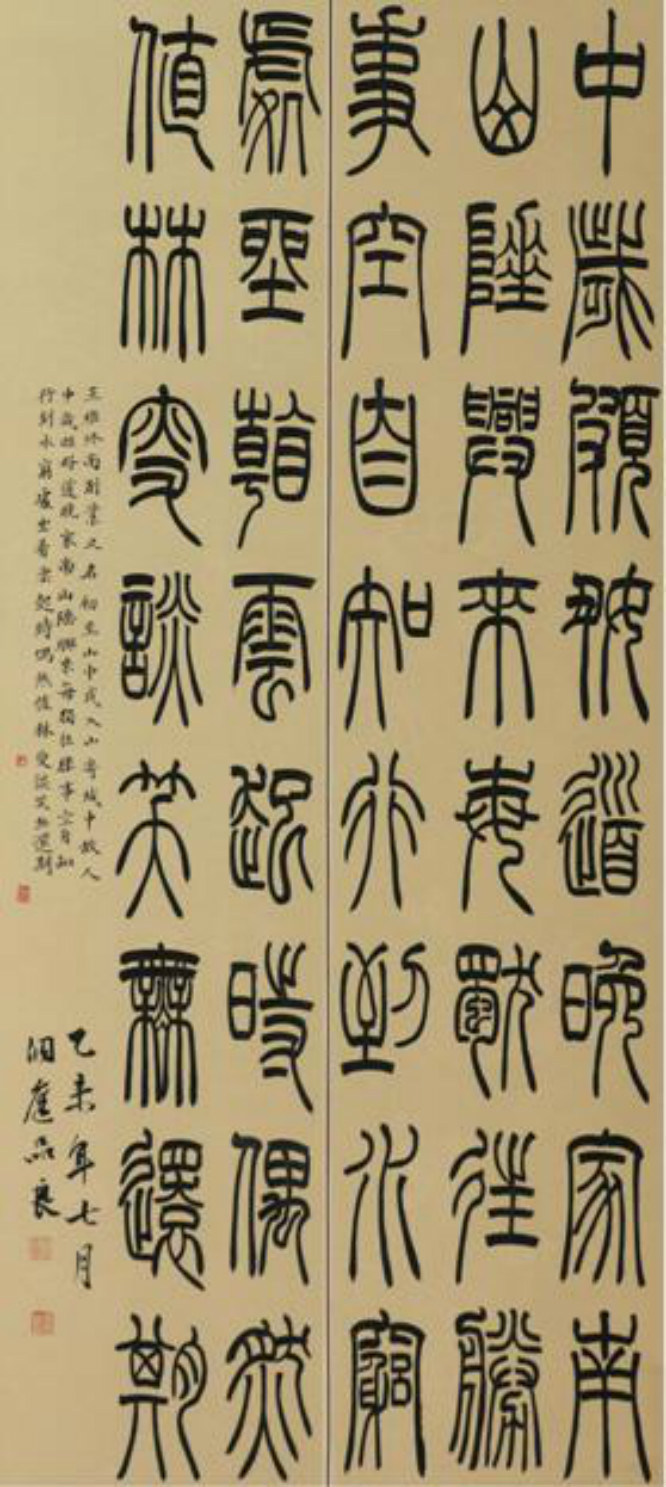 中歲頗好道晚家南
山陲興來每獨往勝
事空自知行到水窮
處坐看雲起時偶然
值林叟談笑無還期
王維終南別業又名初至山中或入山寄城中故人
中歲頗好道晚家南山陲興來每獨往勝事空自知
行到水窮處坐看雲起時偶然值林叟談笑無還期
乙未年七月
品良